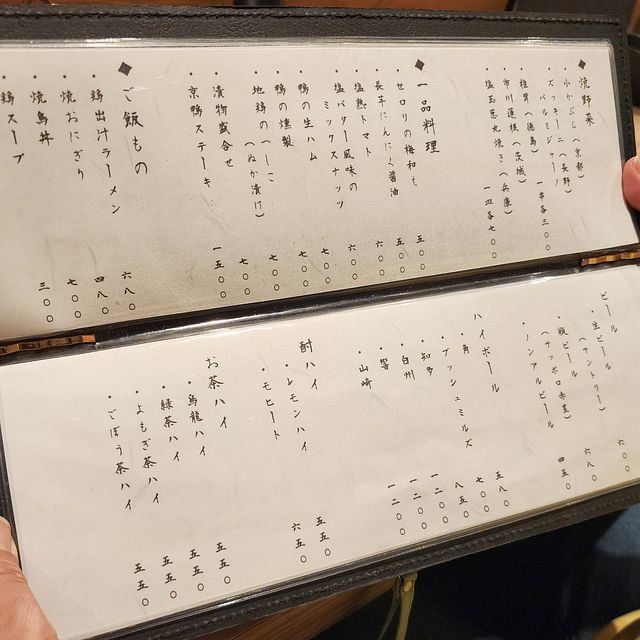 ◆焼野菜
・小かぶら(京都)
・ズッキーニ(長野)
パルミジャーノ
一本各三〇〇
・椎茸(徳島)
・市川蓮根(茨城)
・塩玉葱丸焼き(兵庫)
一四各七〇〇
◆一品料理
・セロリの梅和え 五〇〇
・長芋にんにく醤油 五〇〇
・塩熟トマト 六〇〇
・塩バター風味の
ミックスナッツ 六〇〇
・鴨の生ハム 七〇〇
・鴨の燻製 七〇〇
・地鶏の
(ぬか漬け) 七〇〇
・漬物盛合せ 七〇〇
・京鴨ステーキ 一五〇〇
◆ご飯もの
・鶏出汁ラーメン 六八〇
・焼おにぎり 四八〇
・焼鳥丼 七〇〇
・鶏スープ 三〇〇
ビール
・生ビール
(サントリー) 六〇〇
・瓶ビール
(サッポロ赤星) 六八〇
・ノンアルビール 四五〇
ハイボール
・角 五八〇
・ブッシュミルズ 七〇〇
・知多 八五〇
・白州 一二〇〇
・響 一二〇〇
・山崎 一二〇〇
酎ハイ
・レモンハイ 五五〇
・モヒート 六五〇
お茶ハイ
・烏龍ハイ 五五〇
・緑茶ハイ 五五〇
・よもぎ茶ハイ 五五〇
・ごぼう茶ハイ 五五〇